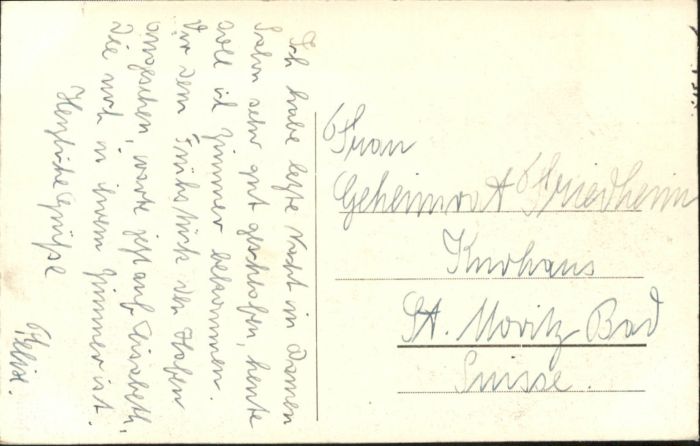 Ich habe letzte Nacht in Damen
Salon sehr gut geschlafen, heute
soll ich Zimmer bekommen.
Vor dem Frühstück den Hafen
angesehen, warte jetzt auf Elisabeth,
die noch in ihrem Zimmer ist.
Herzliche Grüße
Felix.
Frau
Geheimrat Friedheim
Kurhaus
St. Moritz Bad
Suisse.